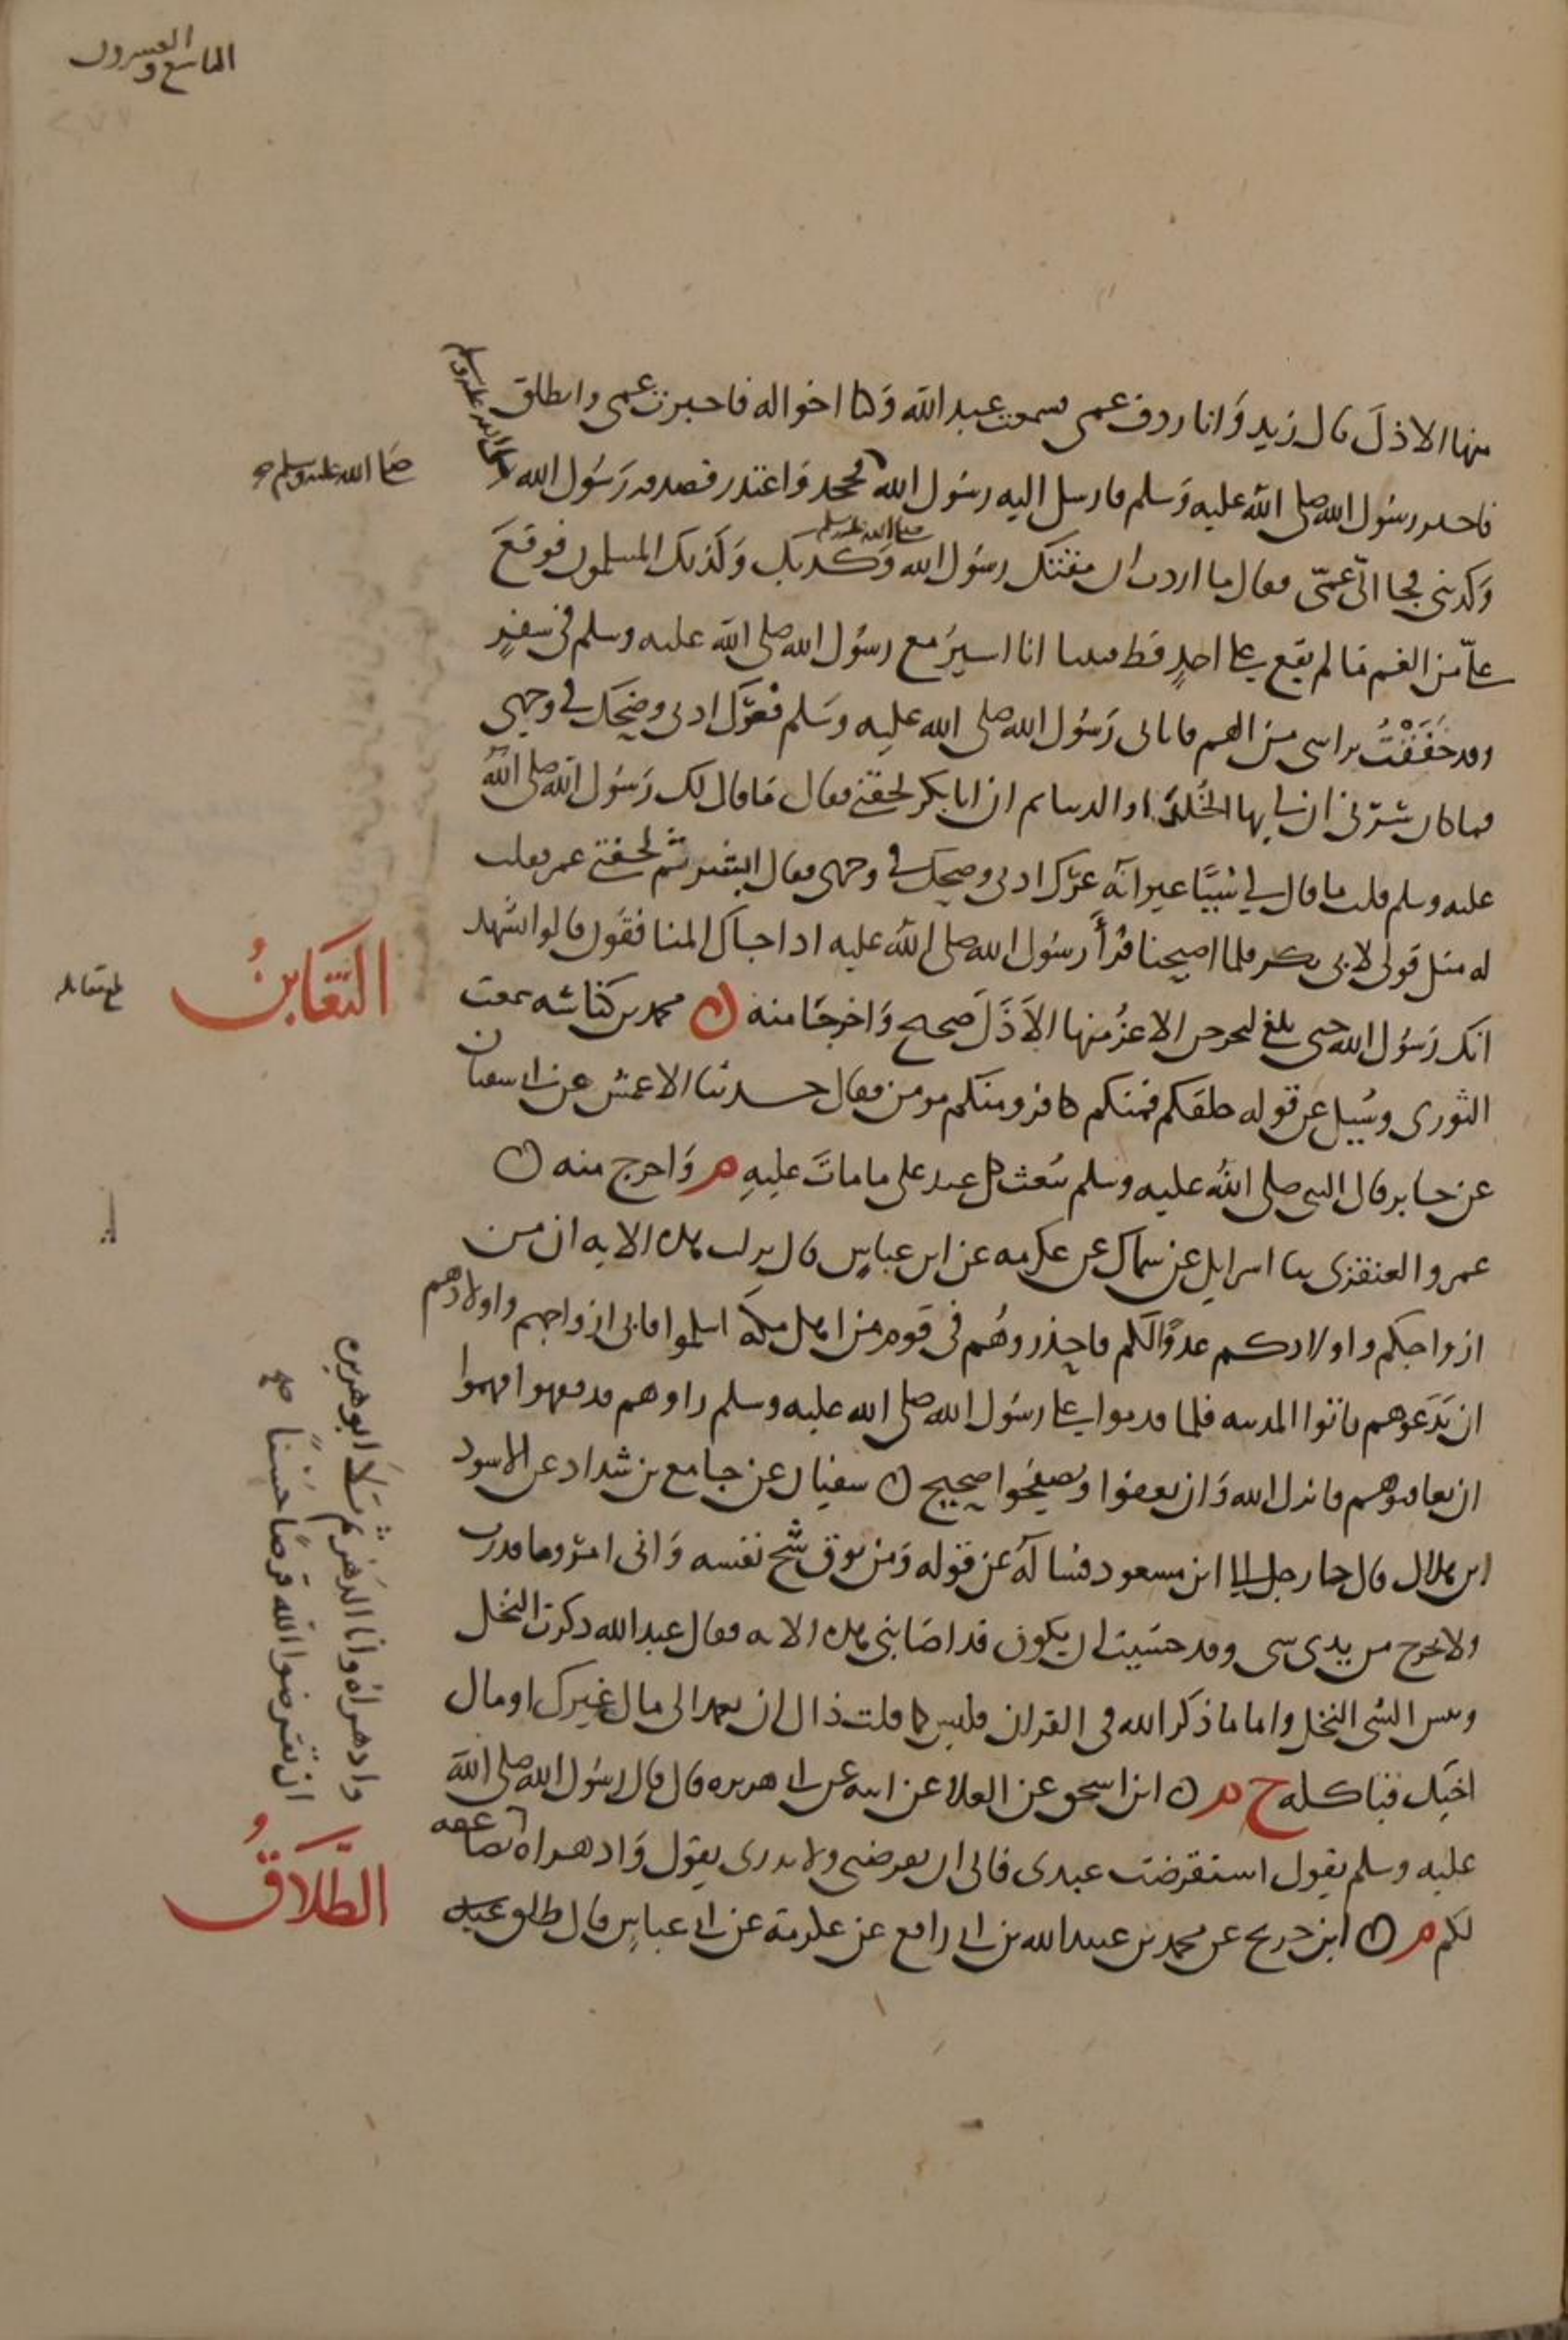 التاسع والعشرون
منها الاذل قال زيد وَانا ردف عمى فسمعت عبد الله وَكنا اخواله فاخبرت عمى وانطلق
فاخبر رسُول الله صلى الله عليه وَسلم فارسل اليه رسُول الله فجحد وَاعتذر فصدقه رَسُول الله صلى الله عليه وسلم
صلى الله عليه وسلم
وَكذبنى فجا الىّ عمّى فقال ما اردت ان مقتتك رسُول الله صلى الله عليه وسلم وَكذبك وَكذبك المسلمون فوقعَ
علىّ من الغم مَا لم يقع على احدٍ قط فبينا انا اسيرُ مع رسُول الله صلى الله عليه وسلم فى سفرٍ
وقد خَفَقْتُ براسى من الهم فاتانى رَسُول الله صلى الله عليه وسَلم فعرَّك اذنى وضحك فى وجهى
فما كان يسُرّنى ان لى بها الخُلدَ او الدنيا ثم ان ابا بكر لحقنى فقال مَا قال لك رَسُول الله صلى اللهُ
عليه وسلم قلت ما قال لى شيئًا غير انّه عرّك اذنى وضحك فى وجهى فقال ابشر ثم لحقنى عمر فقلت
له مثل قولى لابى بكر فلما اصبحنا قرأَ رسُول الله صلى اللهُ عليه اذا جاك المنافقُون قالوا نشهد
انك رَسُول الله حتى بلغ ليخرجن الاعزُ منها الاَذَلَ صحيح وَاخرجَا منه ن محمد بن كناسَه سمعت
التَّغَابنُ
بلغ مقابله
الثورى وسُيل عن قوله خلقكم فمنكم كافر ومنكم مومن فقال حدثنا الاعمش عن ابى سفيان
عن جابر قال النبى صلى اللهُ عليه وسلم يُبعث كل عبد على ما ماتَ عليهِ م وَاخرج منه ن
عمرو العنقزى ثنا اسرايل عن سماك عن عكرمه عن ابن عباسٍ قال نزلت هذه الايه ان من
ازواجكم واولادكم عدوًّا لكم فاحذروهُم فى قوم من اهل مكةَ اسلموا فابى ازواجهم واولادهم
ان يَدَعُوهم ياتوا المدينه فلما قدموا على رسُول الله صلى الله عليه وسلم راوهم قد فقهوا فهموا
ان يعاقبوهم فانزل الله وَان تعفوا وتصفحُوا صحيح ن سفيان عن جامع بن شداد عن الاسود
ابن هلال قال جا رجل الى ابن مسعود فسالهُ عن قوله وَمن يوق شُح نفسه وَانى امرؤ ما قدرت
ولا يخرج من يدى شى وقد خشيت ان يكون قد اصَابتنى هذه الايه فقال عبد الله ذكرت البخل
وبيس الشى البخل واما ما ذكر الله فى القران فليس كما قلت ذاك ان تعمد الى مال غيرك او مال
اخيك فتاكله خ م ن ابن اسحق عن العلا عن ابيه عن ابى هريره قال قال رسُول الله صلى اللهُ
عليه وسلم يقول استقرضت عبدى فابى ان يقرضنى ولا يدرى يقول وَادهراه ان تقرضوا الله قرضا يضاعفه
وادهراه وانا الدهر ثم تَلَا ابو هريره
ان تقرضوا الله قرضًا حَسَنًا صح
لكم م ن ابن جريج عن محمد بن عبيد الله بن ابى رافع عن عكرمة عن ابن عباسٍ قال طلق عبد
الطَّلَاقُ